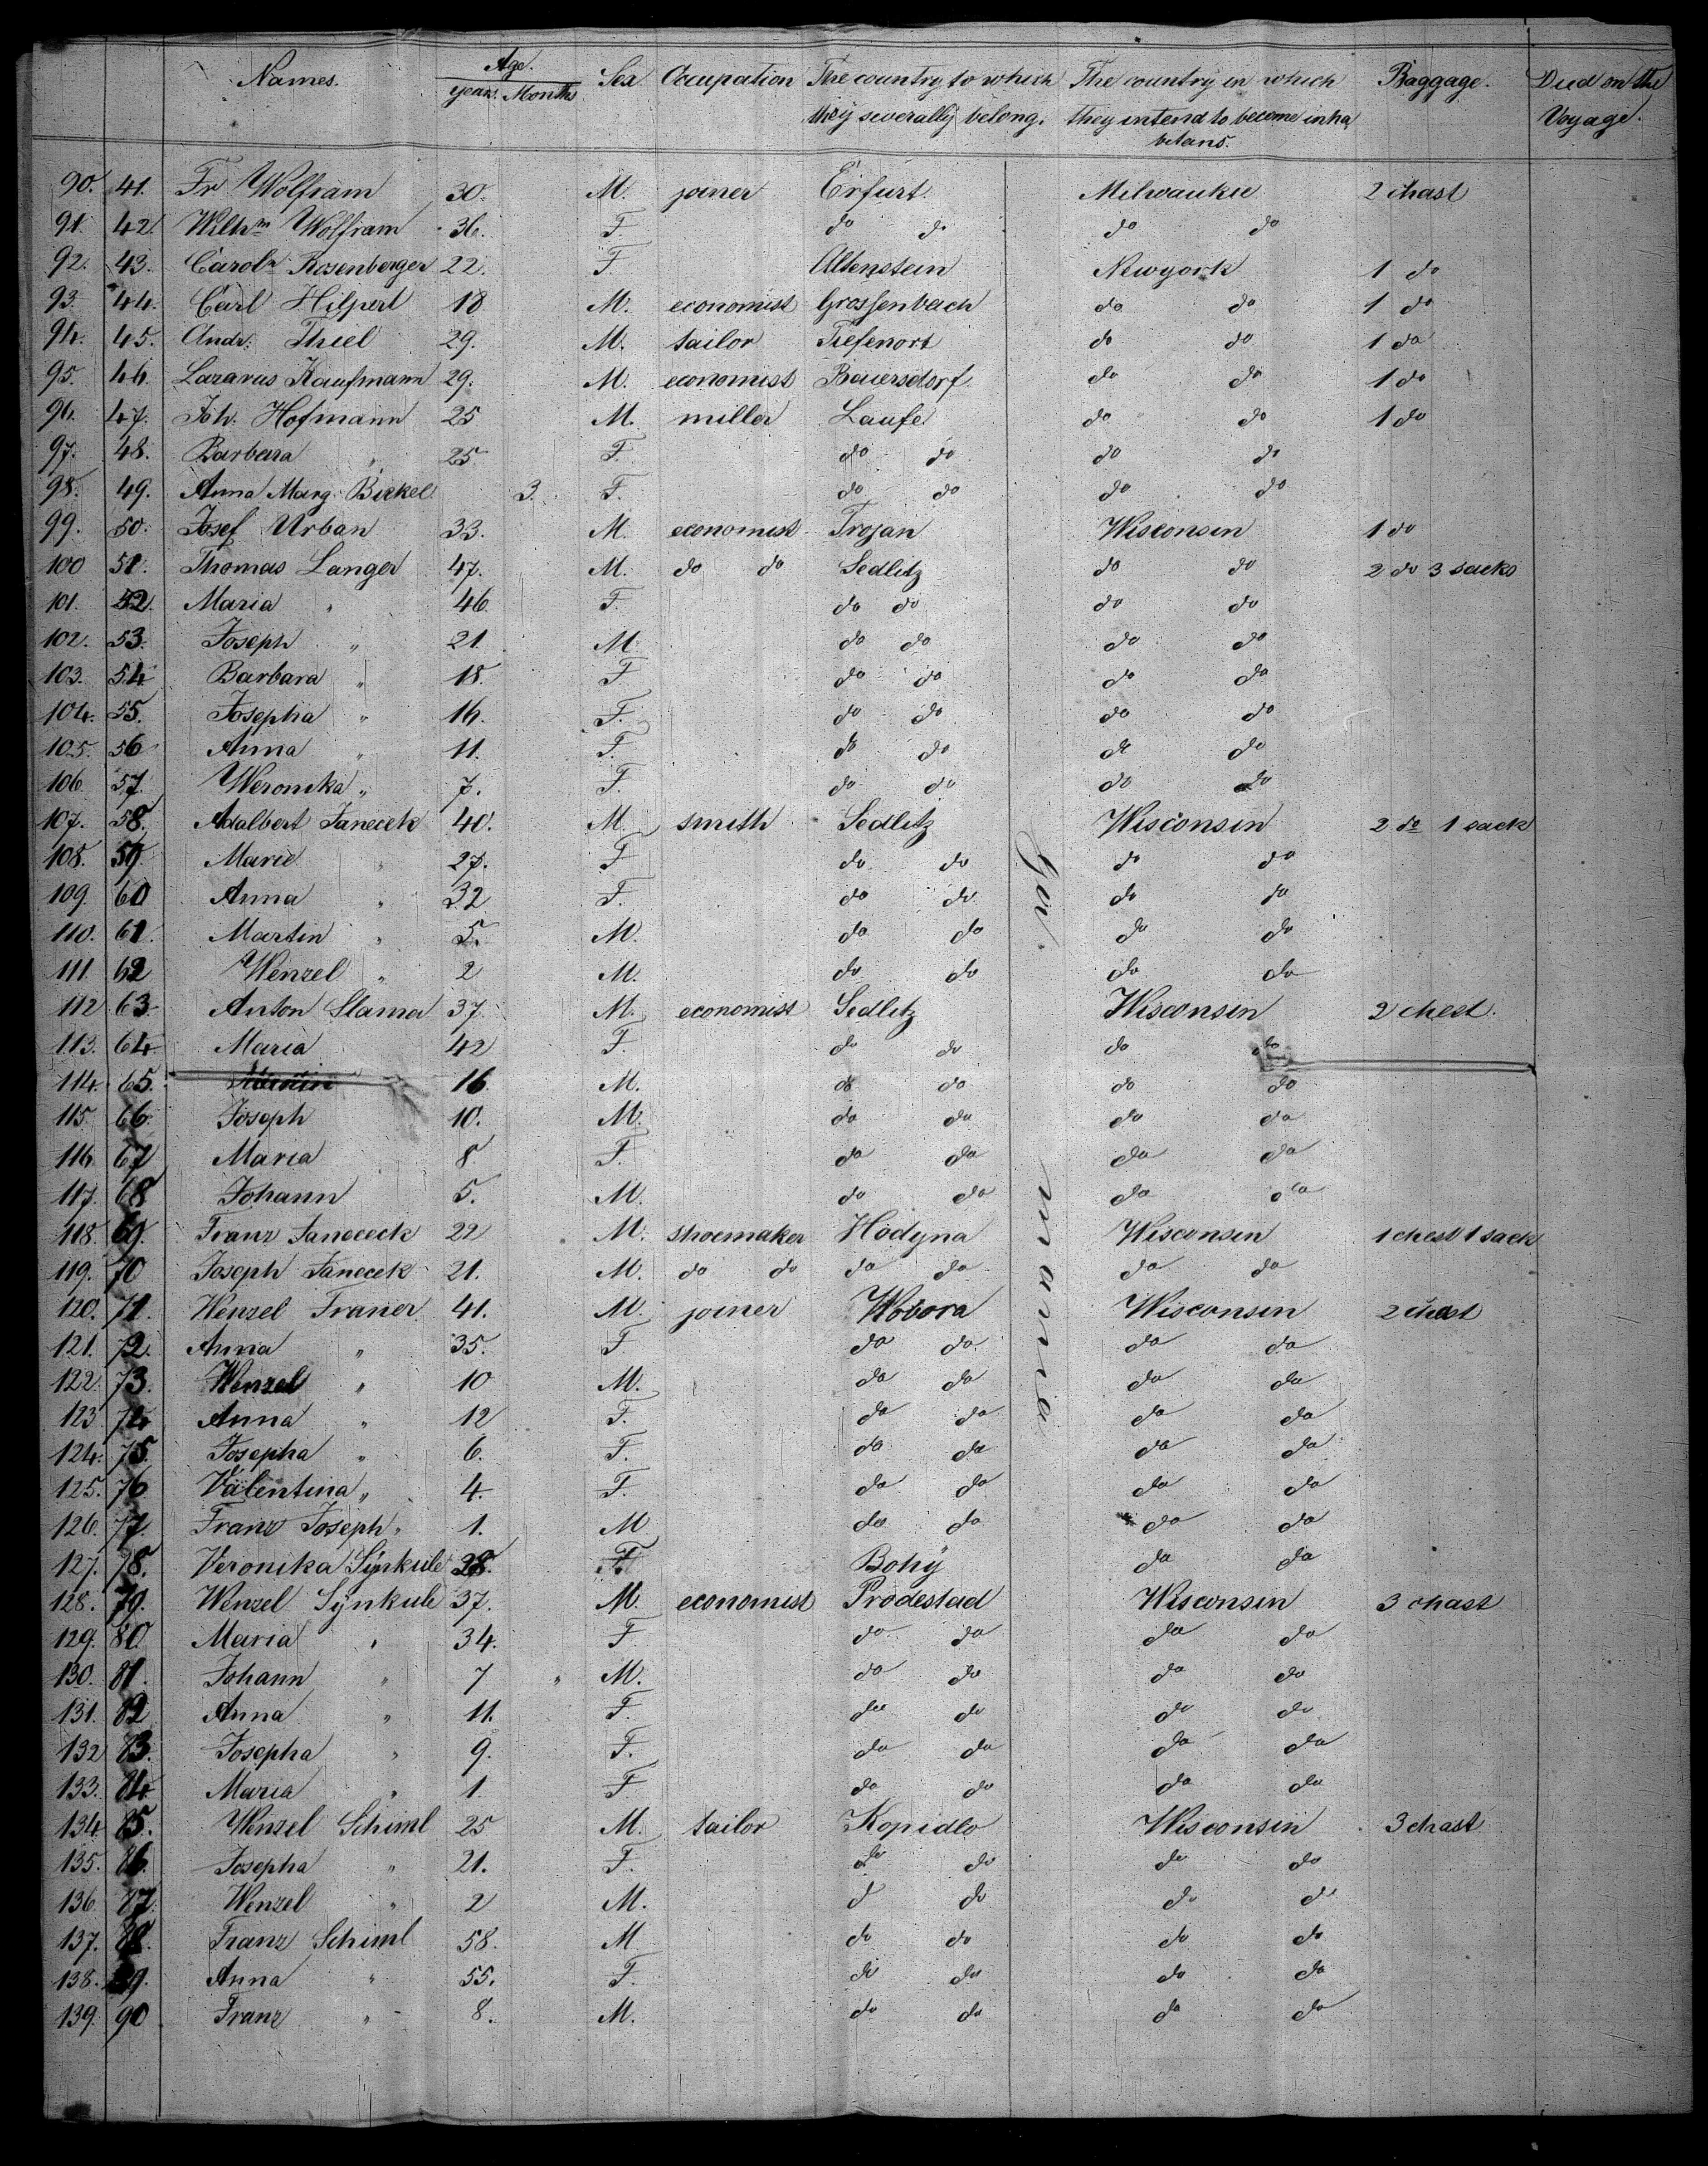 Names. Age. Sex Occupation The country to which The country in which Baggage. Died on the
years. Months they severally belong. they intend to become inha Voyage.
bitans.
90. 41. Fr Wolfram 30. M. joiner Erfurt. Milwaukie 2 chast
91. 42. Wilhm Wolfram 36. F. do do do do
92. 43. Carol Rosenberger 22. F. Altenstein Newyork 1 do
93. 44. Carl Hilpert 18 M. economist Grossenbach do do 1 do
94. 45. Andr. Thiel 29. M. tailor Tiefenort do do 1 do
95. 46. Lazarus Kaufmann 29. M. economist Bauersdorf do do 1 do
96. 47. Joh. Hofmann 25 M. miller Laufe do do 1 do
97. 48. Barbara " 25 F. do do do do
98. 49. Anna Marg. Bickel 3. F. do do do do
99. 50. Josef Urban 33. M. economist Trojan Wisconsin 1 do
100 51. Thomas Langer 47. M. do do Sedlitz do do 2 do 3 sacks
101. 52. Maria " 46 F. do do do do
102. 53. Joseph " 21. M. do do do do
103. 54. Barbara " 18. F. do do do do
104. 55. Josepha " 16. F. do do do do
105. 56 Anna " 11. F. do do do do
106. 57. Weronika " 7. F. do do do do
107. 58. Adalbert Janecek 40. M. smith Sedlitz Wisconsin 2 do 1 sack
108. 59. Marie " 27. F do do do do
109. 60 Anna " 32 F. do do do do
110. 61. Martin " 5. M. do do do do
111. 62 Wenzel " 2 M. do do do do
112 63. Anton Slama 37. M. economist Sedlitz Wisconsin 2 chest.
113. 64. Maria 42 F. do do do do
114. 65. 16. M. do do do do
115. 66. Joseph 10. M. do do do do
116. 67 Maria 8 F. do do do do
117. 68 Johann 5. M. do do do do
118. 69. Franz Janececk 22 M. shoemaker Hodyna Wisconsin 1 chest 1 sack
119. 70 Joseph Janecek 21. M. do do do do do do
120. 71. Wenzel Franer 41. M. joiner Wobora Wisconsin 2 chast
121. 72. Anna " 35. F do do do do
122. 73. Wenzel " 10 M. do do do do
123 74 Anna " 12 F. do do do do
124. 75. Josepha " 6. F. do do do do
125. 76 Valentina " 4. F. do do do do
126. 77. Franz Joseph " 1. M do do do do
127. 78. Veronika Synkule 28. F. Bohy do do
128. 79. Wenzel Synkule 37. M. economist Prodestad Wisconsin 3 chast
129. 80 Maria " 34. F do do do do
130. 81. Johann " 7 " M. do do do do
131. 82 Anna " 11. F. do do do do
132 83. Josepha " 9. F. do do do do
133. 84. Maria " 1. F do do do do
134 85. Wenzel Schiml 25 M. tailor Kopidlo Wisconsin 3 chast
135. 86. Josepha " 21. F. do do do do
136. 87. Wenzel " 2 M. d do do do
137. 88. Franz Schiml 58. M do do do do
138. 89. Anna " 55. F. do do do do
139. 90 Franz " 8. M. do do do do
Germania